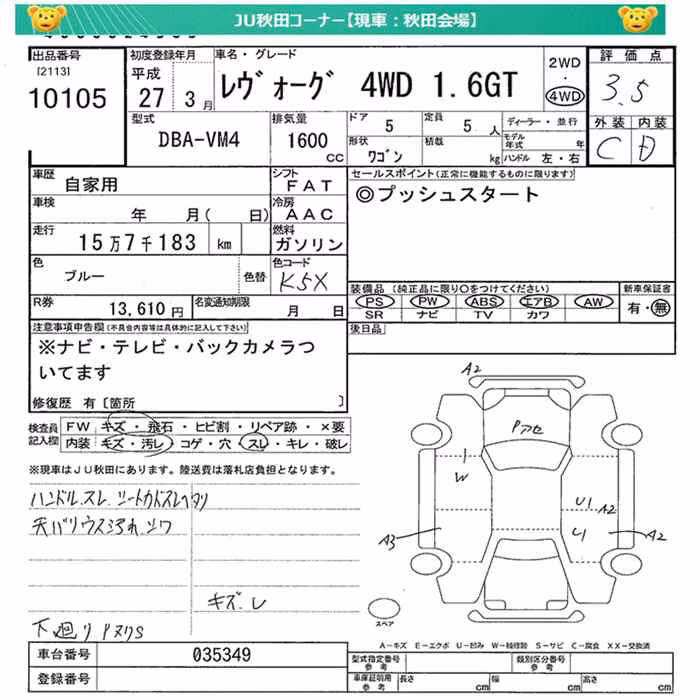 JU秋田コーナー【現車：秋田会場】
出品番号
[2113]
10105
初度登録年月
平成
27 年 3 月
車名・グレード
レヴォーグ 4WD 1.6GT
2WD
・
4WD
評価点
3.5
外装 内装
C D
型式
DBA-VM4
排気量
1600
cc
ドア
5
定員
5 人
ディーラー・並行
形状
ワゴン
積載
kg
モデル年式 年
ハンドル 左・右
車歴
自家用
シフト
FAT
車検
年 月( 日)
冷房
AAC
走行
15万7千183 km
燃料
ガソリン
色
ブルー
色替
色コード
K5X
R券
13,610 円
名変通知期限
月 日
セールスポイント(正常に機能するものに限ります)
◎プッシュスタート
装備品 (純正品に限り○をつけてください)
PS PW ABS エアB AW
SR ナビ TV カワ
新車保証書
有・無
後日品
注意事項申告欄(不具合内容等は具体的に記入して下さい)
※ナビ・テレビ・バックカメラついてます
修復歴 有 [箇所
検査員記入欄
FW キズ・飛石・ヒビ割・リペア跡・×要
内装 キズ・汚レ・コゲ・穴・スレ・キレ・破レ
※現車はJU秋田にあります。陸送費は落札店負担となります。
ハンドル.スレ シートカドスレヘタリ
天バリウス汚れ.シワ
キズ.レ
下廻り
A2
Pアセ
W
U1
A2
U1
A3
A2
スペア
A－キズ E－エクボ U－凹み W－補修跡 S－サビ C－腐食 XX－交換済
車台番号
035349
登録番号
型式指定番号
参考
類別区分番号
参考
車庫証明用
参考
長さ cm
幅 cm
高さ cm